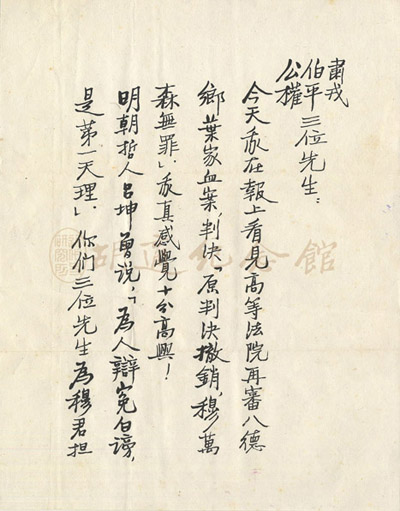 肅戎
伯平
公權
三位先生：
今天我在報上看見高等法院再審八德
鄉葉家血案，判決「原判決撤銷，穆萬
森無罪」，我真感覺十分高興！
明朝哲人呂坤曾說，「為人辯冤白謗，
是第一天理」，你们三位先生為穆君担
胡適紀念館